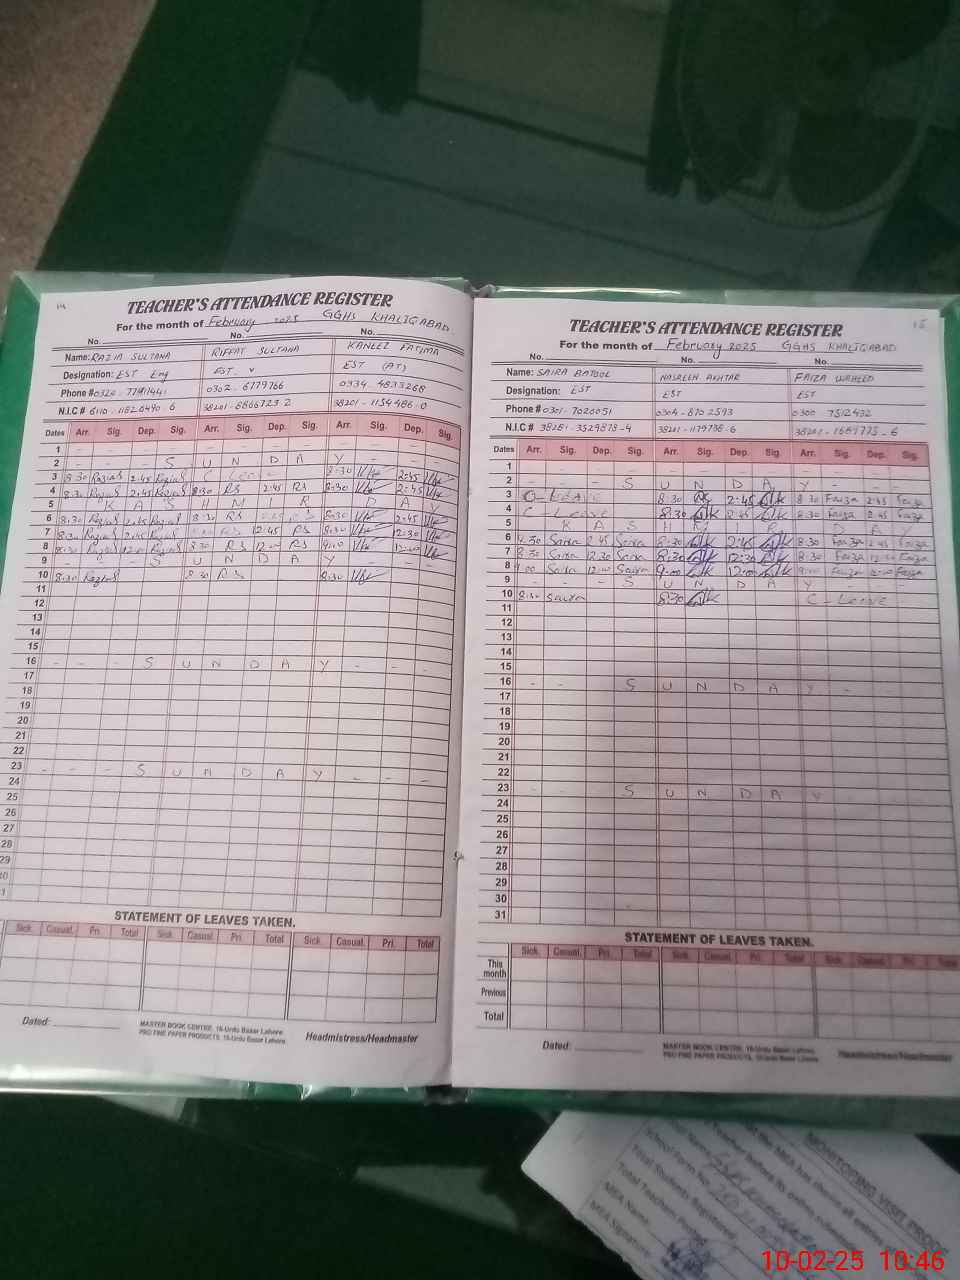 14
TEACHER'S ATTENDANCE REGISTER
For the month of February 2025 GGHS KHALIQABAD
No. No. No.
Name: RAZIA SULTANA RIFFAT SULTANA KANEEZ FATIMA
Designation: EST Eng EST EST (AT)
Phone # 0302-6779766 0334-4833268
N.I.C # 38201-1154486-0
Dates Arr. Sig. Dep. Sig. Arr. Sig. Dep. Sig. Arr. Sig. Dep. Sig.
1
2 - - - S U N D A Y - - -
3 8:30 Razia S 2:45 Razia S C Leave 8:30 2:45
4 8:30 Razia S 2:45 Razia S 8:30 RS 2:45 RS 8:30 2:45
5 K A S H M I R D A Y
6 8:30 Razia S 2:45 Razia S 8:30 RS RS 8:30 2:45
7 8:30 Razia S Razia S RS 12:45 RS 8:30 12:30
8 8:30 Razia S 12:00 Razia S 8:30 RS 12:00 RS 9:00 12:00
9 - - S U N D A Y - - -
10 8:30 Razia S 8:30 RS 8:30
11
12
13
14
15
16 - - - S U N D A Y - - -
17
18
19
20
21
22
23 - - - S U N D A Y - - -
24
25
26
27
28
29
30
31
STATEMENT OF LEAVES TAKEN.
Sick. Casual. Pri. Total Sick. Casual. Pri. Total Sick. Casual. Pri. Total
Dated:
MASTER BOOK CENTRE. 16-Urdu Bazar Lahore.
PRO FINE PAPER PRODUCTS. 16-Urdu Bazar Lahore.
Headmistress/Headmaster
15
TEACHER'S ATTENDANCE REGISTER
For the month of February 2025 GGHS KHALIQABAD
No. No. No.
Name: SAIRA BATOOL NASREEN AKHTAR FAIZA WAHEED
Designation: EST EST EST
Phone # 0301-7020051 0304-8702593 0300 7512432
N.I.C # 38201-3529878-4 38201-1179738-6 38201-1669775-6
Dates Arr. Sig. Dep. Sig. Arr. Sig. Dep. Sig. Arr. Sig. Dep. Sig.
1
2 - - S U N D A Y - -
3 C-Leave 8:30 2:45 8:30 Faiza 2:45 Faiza
4 C-Leave 8:30 2:45 8:30 Faiza 2:45 Faiza
5 K A S H M I R D A Y
6 Saira 2:45 Saira 8:30 2:45 8:30 Faiza 2:45 Faiza
7 8:30 Saira 12:30 Saira 8:30 12:30 8:30 Faiza Faiza
8 9:00 Saira 12:00 Saira 9:00 12:00 9:00 Faiza 12:00 Faiza
9 - - S U N D A Y - -
10 8:30 Saira 8:30 C-Leave
11
12
13
14
15
16 - - S U N D A Y -
17
18
19
20
21
22
23 - - S U N D A Y
24
25
26
27
28
29
30
31
STATEMENT OF LEAVES TAKEN.
Sick. Casual. Pri. Total Sick. Casual. Pri. Total Sick. Casual. Pri. Total
This month
Previous
Total
Dated:
MASTER BOOK CENTRE. 16-Urdu Bazar Lahore.
PRO FINE PAPER PRODUCTS. 16-Urdu Bazar Lahore.
Headmistress/Headmaster
MONITORING VISIT PROOF
Total Students Registered
Total Teachers Posted
MEA Name:
MEA Signature
10-02-25 10:46